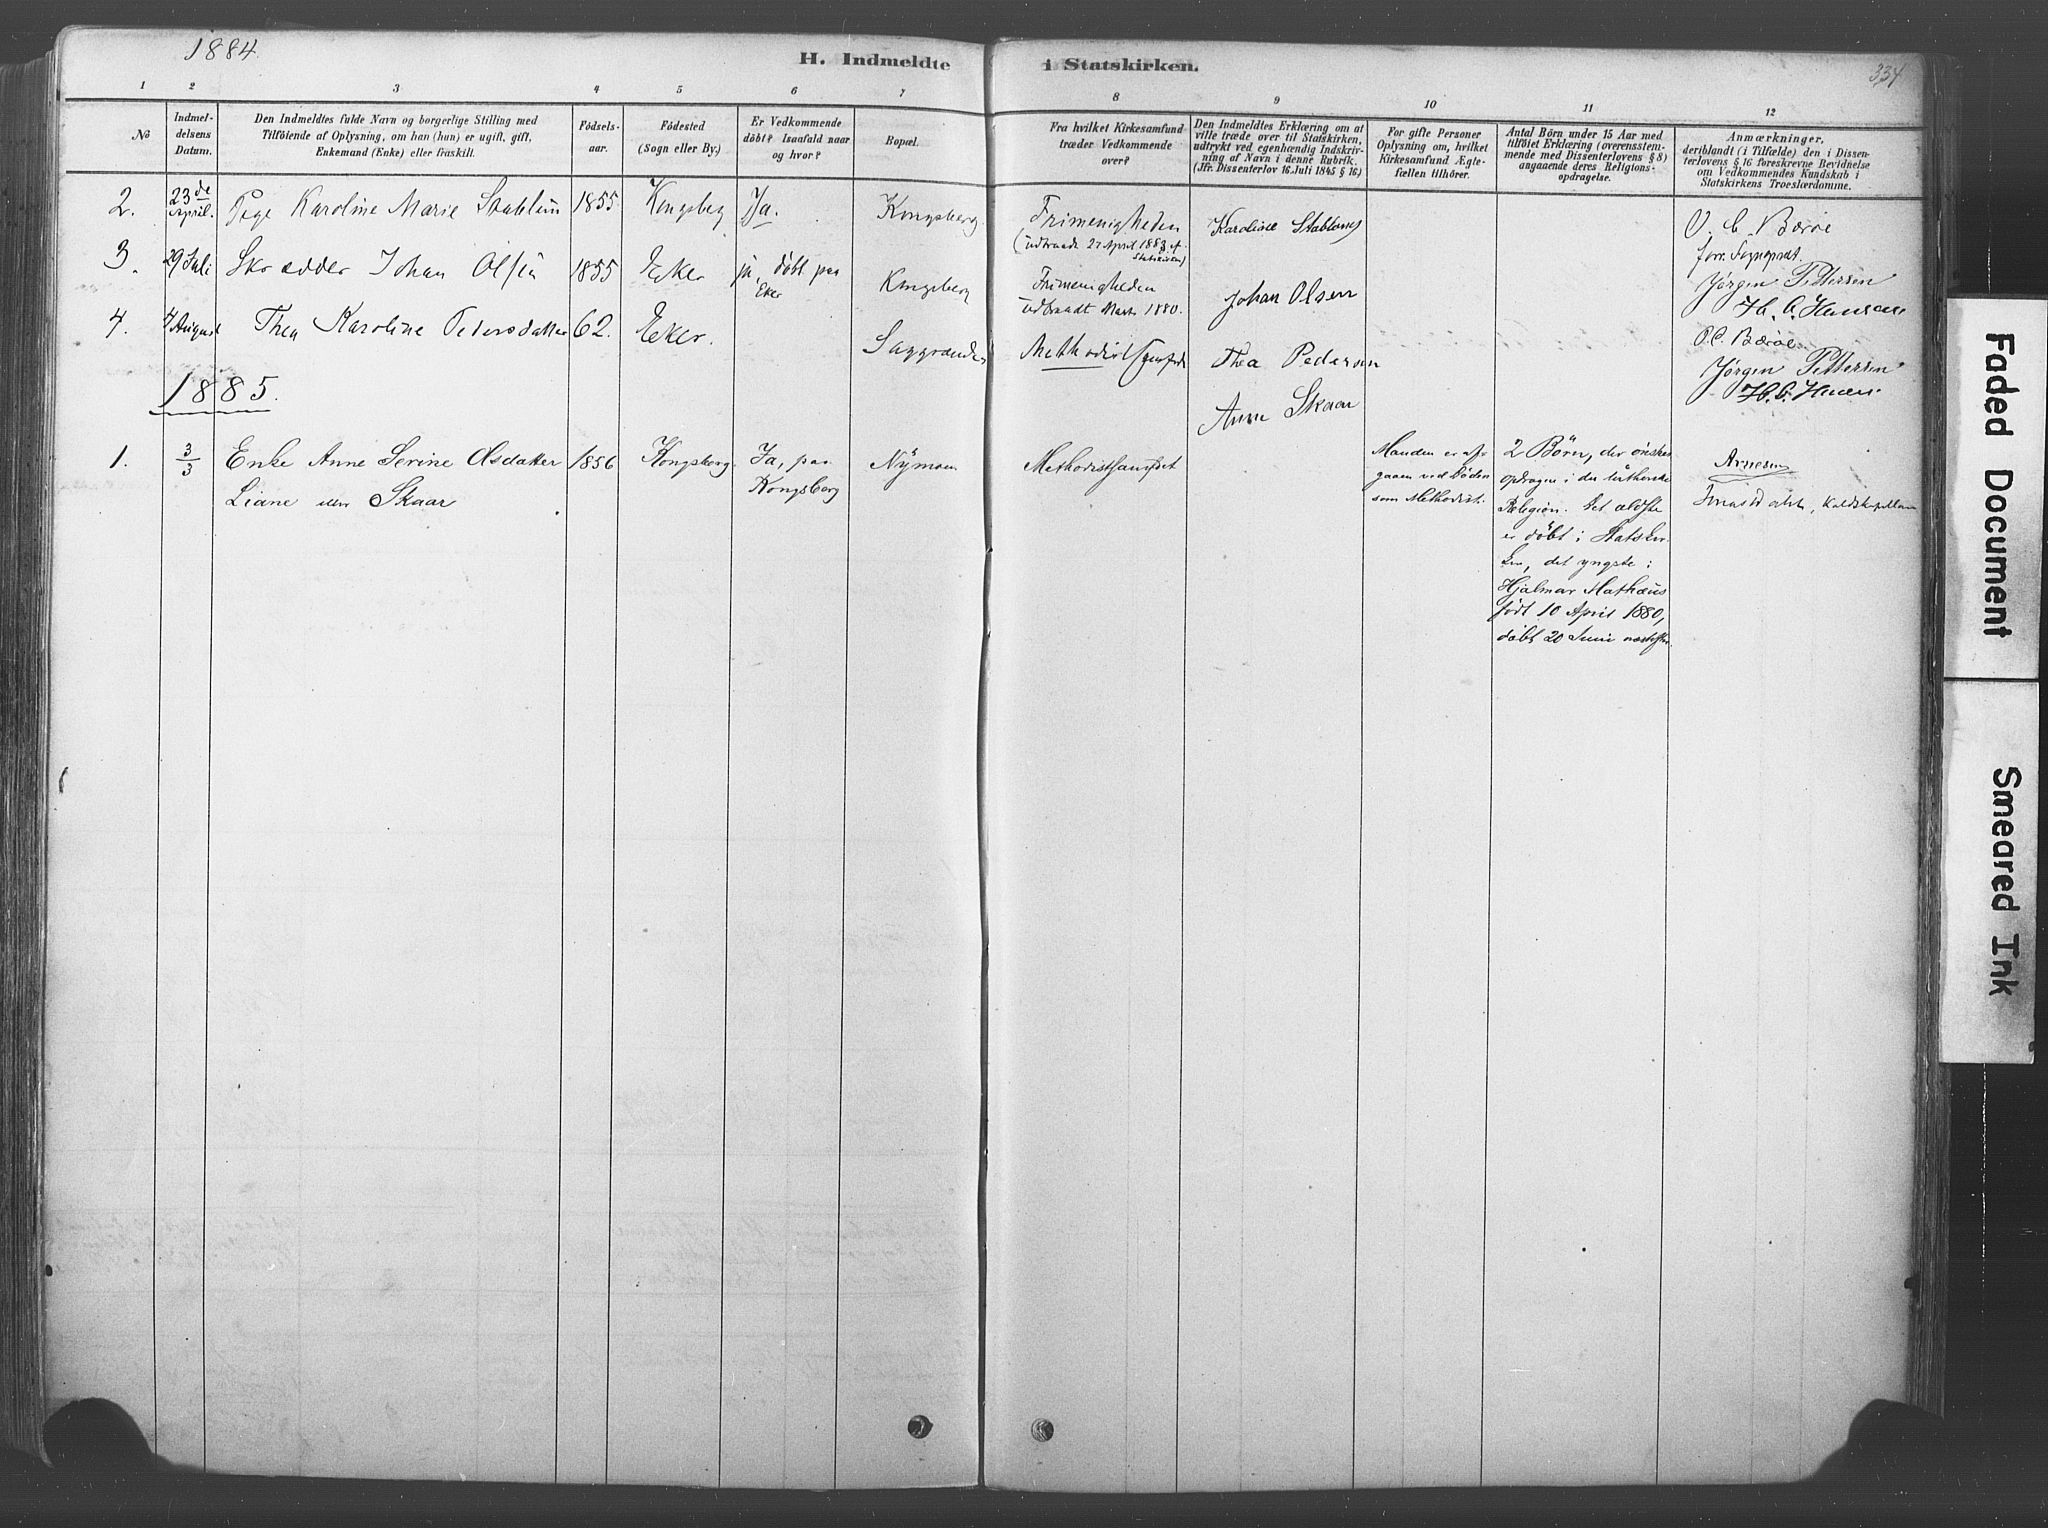 1884.
H. Indmeldte i Statskirken.
334
1 2 3 4 5 6 7 8 9 10 11 12
No
Indmel-
delsens
Datum.
Den Indmeldtes fulde Navn og borgerlige Stilling med
Tilföiende af Oplysning, om han (hun) er ugift, gift,
Enkemand (Enke) eller fraskilt.
Födsels-
aar.
Födested
(Sogn eller By.)
Er Vedkommende
döbt? Isaafald naar
og hvor?
Bopæl.
Fra hvilket Kirkesamfund
træder Vedkommende
over?
Den Indmeldtes Erklæring om at
ville træde over til Statskirken,
udtrykt ved egenhændig Indskriv-
ning af Navn i denne Rubrik.
(Jfr. Dissenterlov 16. Juli 1845 § 16)
For gifte Personer
Oplysning om, hvilket
Kirkesamfund Ægte-
fællen tilhörer.
Antal Börn under 15 Aar med
tilföiet Erklæring (overensstem-
mende med Dissenterlovens § 8)
angaaende deres Religions-
opdragelse.
Anmærkninger,
deriblandt (i Tilfælde) den i Dissen-
terlovens § 16 foreskrevne Bevidnelse
om Vedkommendes Kundskab i
Statskirkens Troeslærdomme.
2.
23de
April.
Pige Karoline Marie Stablum
1855.
Kongsberg
Ja.
Kongsberg.
Frimenigheden
(udtraadt 27 April 1883 af
Statskirken)
Karoline
O. C. Barøe
forr. Sognepræst.
3.
29 Juli
Skrædder Johan Olsen
1855
Eker
ja, döbt paa
Eker
Kongsberg
Frimenigheden
udtraadt Marts 1880.
Johan Olsen
Jørgen Pettersen
H. O. Hansen
4.
4 August
Thea Karoline Pedersdatter
62.
Eker.
Saggrenden
Methodistsamfundet
Thea Pedersen
O. C. Barøe
Jørgen Pettersen
1885.
Anne Skaar
1.
3/3
Enke Anne Serine Olsdatter
Liane eller Skaar
1856
Kongsberg
Ja, paa
Kongsberg
Nymoen
Methodistsamfdet
Manden er af-
gaaen ved Döden
som Methodist.
2 Börn, der önskes
opdragne i den lutherske
Religion. Det ældste
er döbt i Statskir-
ken, det yngste:
Hjalmar Mathæus
födt 10 April 1880,
döbt 20 Juni næstefter.
Arnesen
Faded Document
Smeared Ink